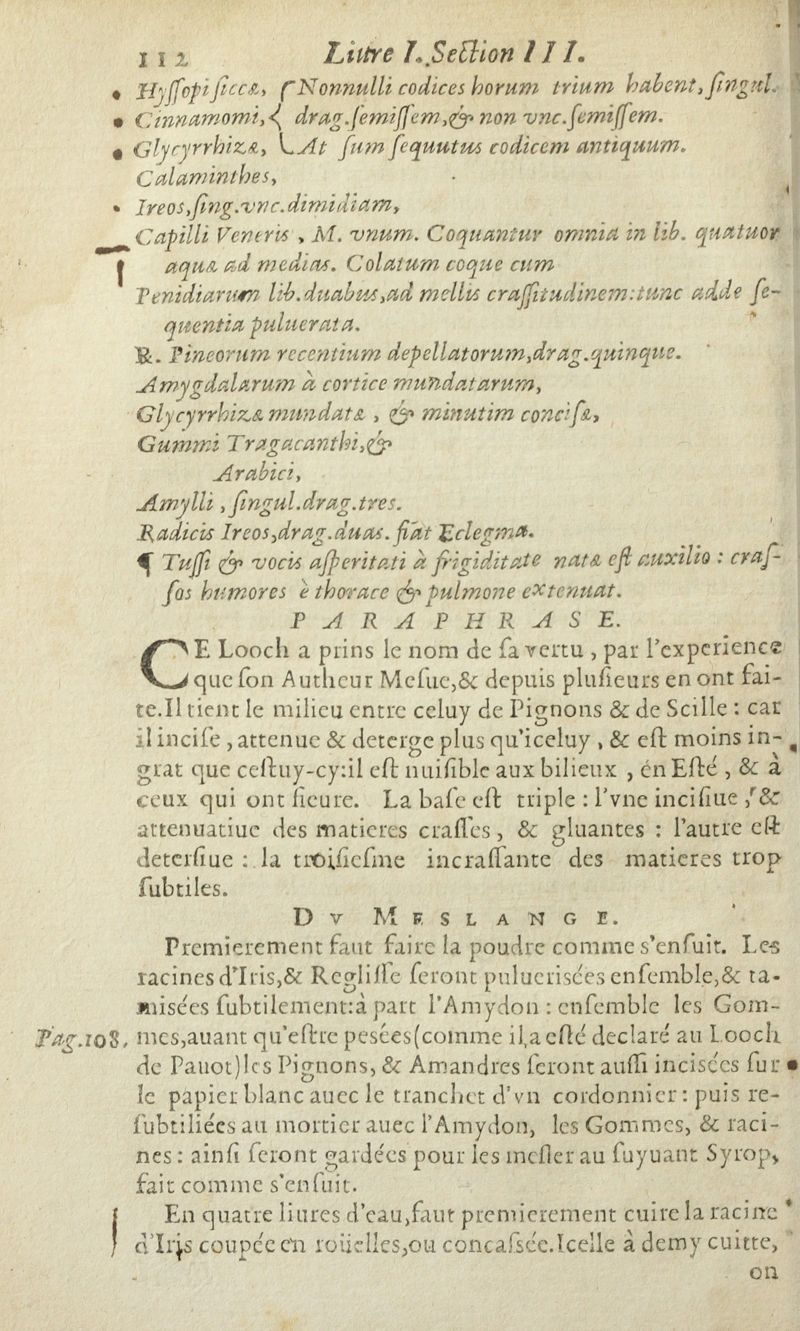 112 Liure I. Section III.
Hyssopi siccæ, { Nonnulli codices horum trium habent, singul.
Cinnamomi, { drag. semissem, & non vnc. semissem.
Glycyrrhizæ, { At sum sequutus codicem antiquum.
Calaminthes,
Ireos, sing. vnc. dimidiam,
Capilli Veneris, M. vnum. Coquantur omnia in lib. quatuor
aquæ ad medias. Colatum coque cum
Penidiarum lib. duabus, ad mellis crassitudinem: tunc adde se-
quentia puluerata.
℞. Pineorum recentium depellatorum, drag. quinque.
Amygdalarum à cortice mundatarum,
Glycyrrhizæ mundatæ, & minutim concisæ,
Gummi Tragacanthi, &
Arabici,
Amylli, singul. drag. tres.
Radicis Ireos, drag. duas. fiat Eclegma.
¶ Tussi & vocis asperitati à frigiditate natæ est auxilio : cras-
sos humores è thorace & pulmone extenuat.
PARAPHRASE.
CE Looch a prins le nom de sa vertu, par l'experience
que son Autheur Mesue, & depuis plusieurs en ont fai-
te. Il tient le milieu entre celuy de Pignons & de Scille : car
il incise, attenue & deterge plus qu'iceluy, & est moins in-
grat que cestuy-cy: il est nuisible aux bilieux, én Esté, & à
ceux qui ont sieure. La base est triple : l'vne incisiue, & 
attenuatiue des matieres crasses, & gluantes : l'autre est
detersiue : la troisiesme incrassante des matieres trop
subtiles.
Dv MESLANGE.
Premierement faut faire la poudre comme s'ensuit. Les
racines d'Iris, & Reglisse seront puluerisées ensemble, & ta-
misées subtilement: à part l'Amydon : ensemble les Gom-
Pag. 108. mes, auant qu'estre pesées (comme il a esté declaré au Looch
de Pauot) les Pignons, & Amandres seront aussi incisées sur
le papier blanc auec le tranchet d'vn cordonnier : puis re-
subtiliées au mortier auec l'Amydon, les Gommes, & raci-
nes : ainsi seront gardées pour les mesler au suyuant Syrop,
fait comme s'ensuit.
En quatre liures d'eau, faut premierement cuire la racine
d'Iris coupée en roüelles, ou concassée. Icelle à demy cuitte,
on